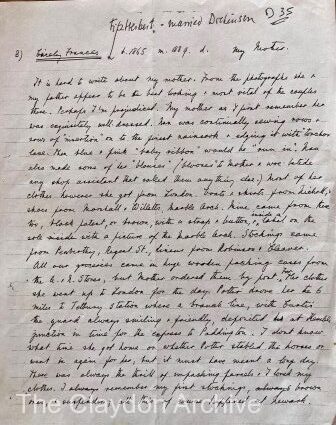 Herbert - married Dickinson D 35
2) Gaisly Frances b. 1865 m. 1889. d. My Mother.
It is hard to write about my mother. From the photographs she &
my father appear to be the best looking & most vital of the couples
there. Perhaps I'm prejudiced. My mother as I first remember her
was exquisitely well dressed. Nan was continually sewing rows &
rows of "insertion" on to the finest nainsook & edging it with torchon
lace. Then blue & pink "baby ribbon" would be "run in". Nan
also made some of her 'blouses' ('blowses' to mother & woe betide
any shop assistant that called them anything else.) Most of her
clothes however she got from London. Coats & skirts from Nicholl,
shoes from Marshall & Willetts, Marble Arch. Mine came from there
too, black patent, or brown, with a strap & button, & on the
sole inside with a picture of the Marble Arch. Stockings came
from Penberthy, Regent St., linens from Robinson & Cleaver.
All our groceries came in huge wooden packing cases from
the A. & N. Stores, but mother ordered them by post. For clothes
she went up to London for the day. Potter drove her the 6
miles to Tettenhall station where a branch line, with
the guard always smiling & friendly, deposited her at Kemble
junction in time for the express to Paddington. I don't know
what time she got home or whether Potter stabled the horses or
went in again for her, but it must have meant a long day.
There was always the thrill of unpacking parcels & I loved my
clothes. I always remember my first stockings, always brown
The Claydon Archive